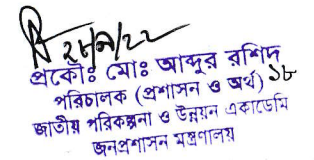 ২৮/৯/২২
প্রকৌঃ মোঃ আব্দুর রশিদ
পরিচালক (প্রশাসন ও অর্থ) ১৮
জাতীয় পরিকল্পনা ও উন্নয়ন একাডেমি
জনপ্রশাসন মন্ত্রণালয়